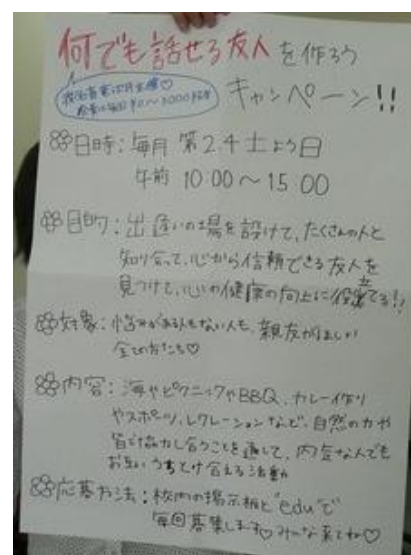 何でも話せる友人を作ろう
キャンペーン!!
日時：毎月 第2.4土よう日
午前 10:00～15:00
目的：出逢いの場を設けて、たくさんの人と
知り合って、心から信頼できる友人を
見つけて、心の健康の向上に役立てる!!
対象：悩みがある人もない人も、親友がほしい
全ての方たち♡
内容：海やピクニックやBBQ、カレー作り
やスポーツ、レクレーションなど、自然の力や
皆で協力し合うことを通して、内気な人でも
お互いうちとけ合える活動
応募方法：校内の掲示板と"edu"で
毎回募集します♡みんな来てね♡